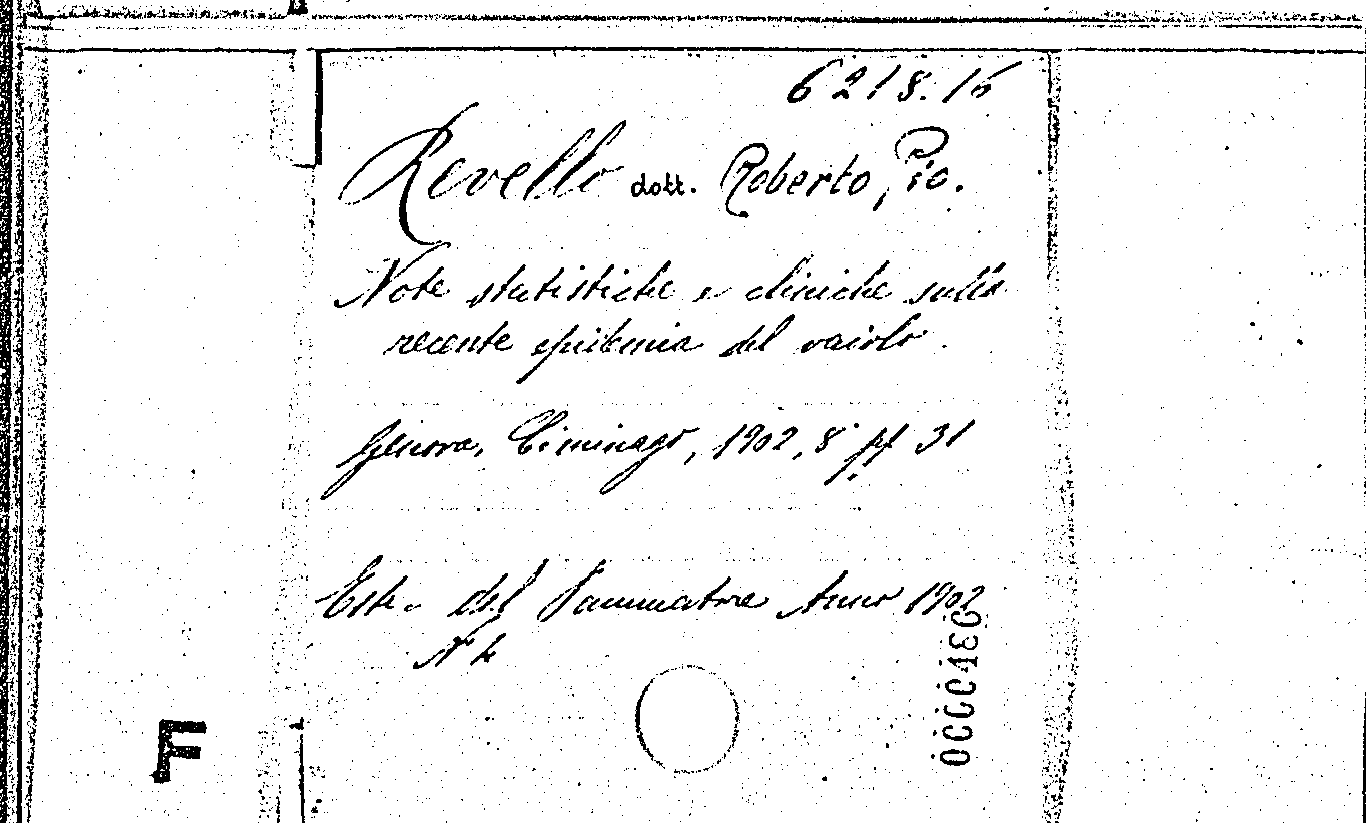 6218.16
Revello dott. Roberto, Pio.
Note statistiche e cliniche sulla
recente epidemia del vaiolo.
Genova, Ciminago, 1902, 8° pp 31
Estr. del Pammatone Anno 1902
N 4
F